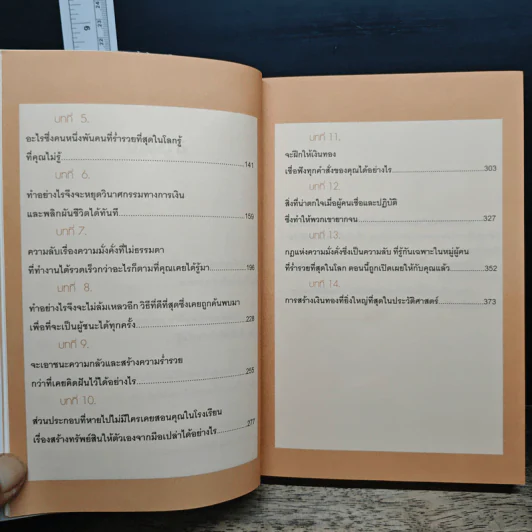 บทที่ 5.
อะไรซึ่งคนหนึ่งพันคนที่ร่ำรวยที่สุดในโลกรู้
ที่คุณไม่รู้..........141
บทที่ 6.
ทำอย่างไรจึงจะหยุดวินาศกรรมทางการเงิน
และพลิกผันชีวิตได้ทันที..........159
บทที่ 7.
ความลับเรื่องความมั่งคั่งที่ไม่ธรรมดา
ที่ทำงานได้รวดเร็วกว่าอะไรก็ตามที่คุณเคยได้รู้มา..........196
บทที่ 8.
ทำอย่างไรจึงจะไม่ล้มเหลวอีก วิธีที่ดีที่สุดซึ่งเคยถูกค้นพบมา
เพื่อที่จะเป็นผู้ชนะได้ทุกครั้ง..........228
บทที่ 9.
จะเอาชนะความกลัวและสร้างความร่ำรวย
กว่าที่เคยคิดฝันไว้ได้อย่างไร..........255
บทที่ 10.
ส่วนประกอบที่หายไปไม่มีใครเคยสอนคุณในโรงเรียน
เรื่องสร้างทรัพย์สินให้ตัวเองจากมือเปล่าได้อย่างไร..........277
บทที่ 11.
จะฝึกให้เงินทอง
เชื่อฟังทุกคำสั่งของคุณได้อย่างไร..........303
บทที่ 12.
สิ่งที่น่าตกใจเมื่อผู้คนเชื่อและปฏิบัติ
ซึ่งทำให้พวกเขายากจน..........327
บทที่ 13.
กฎแห่งความมั่งคั่งซึ่งเป็นความลับ ที่รู้กันเฉพาะในหมู่ผู้คน
ที่ร่ำรวยที่สุดในโลก ตอนนี้ถูกเปิดเผยให้กับคุณแล้ว..........352
บทที่ 14.
การสร้างเงินทองที่ยิ่งใหญ่ที่สุดในประวัติศาสตร์..........373